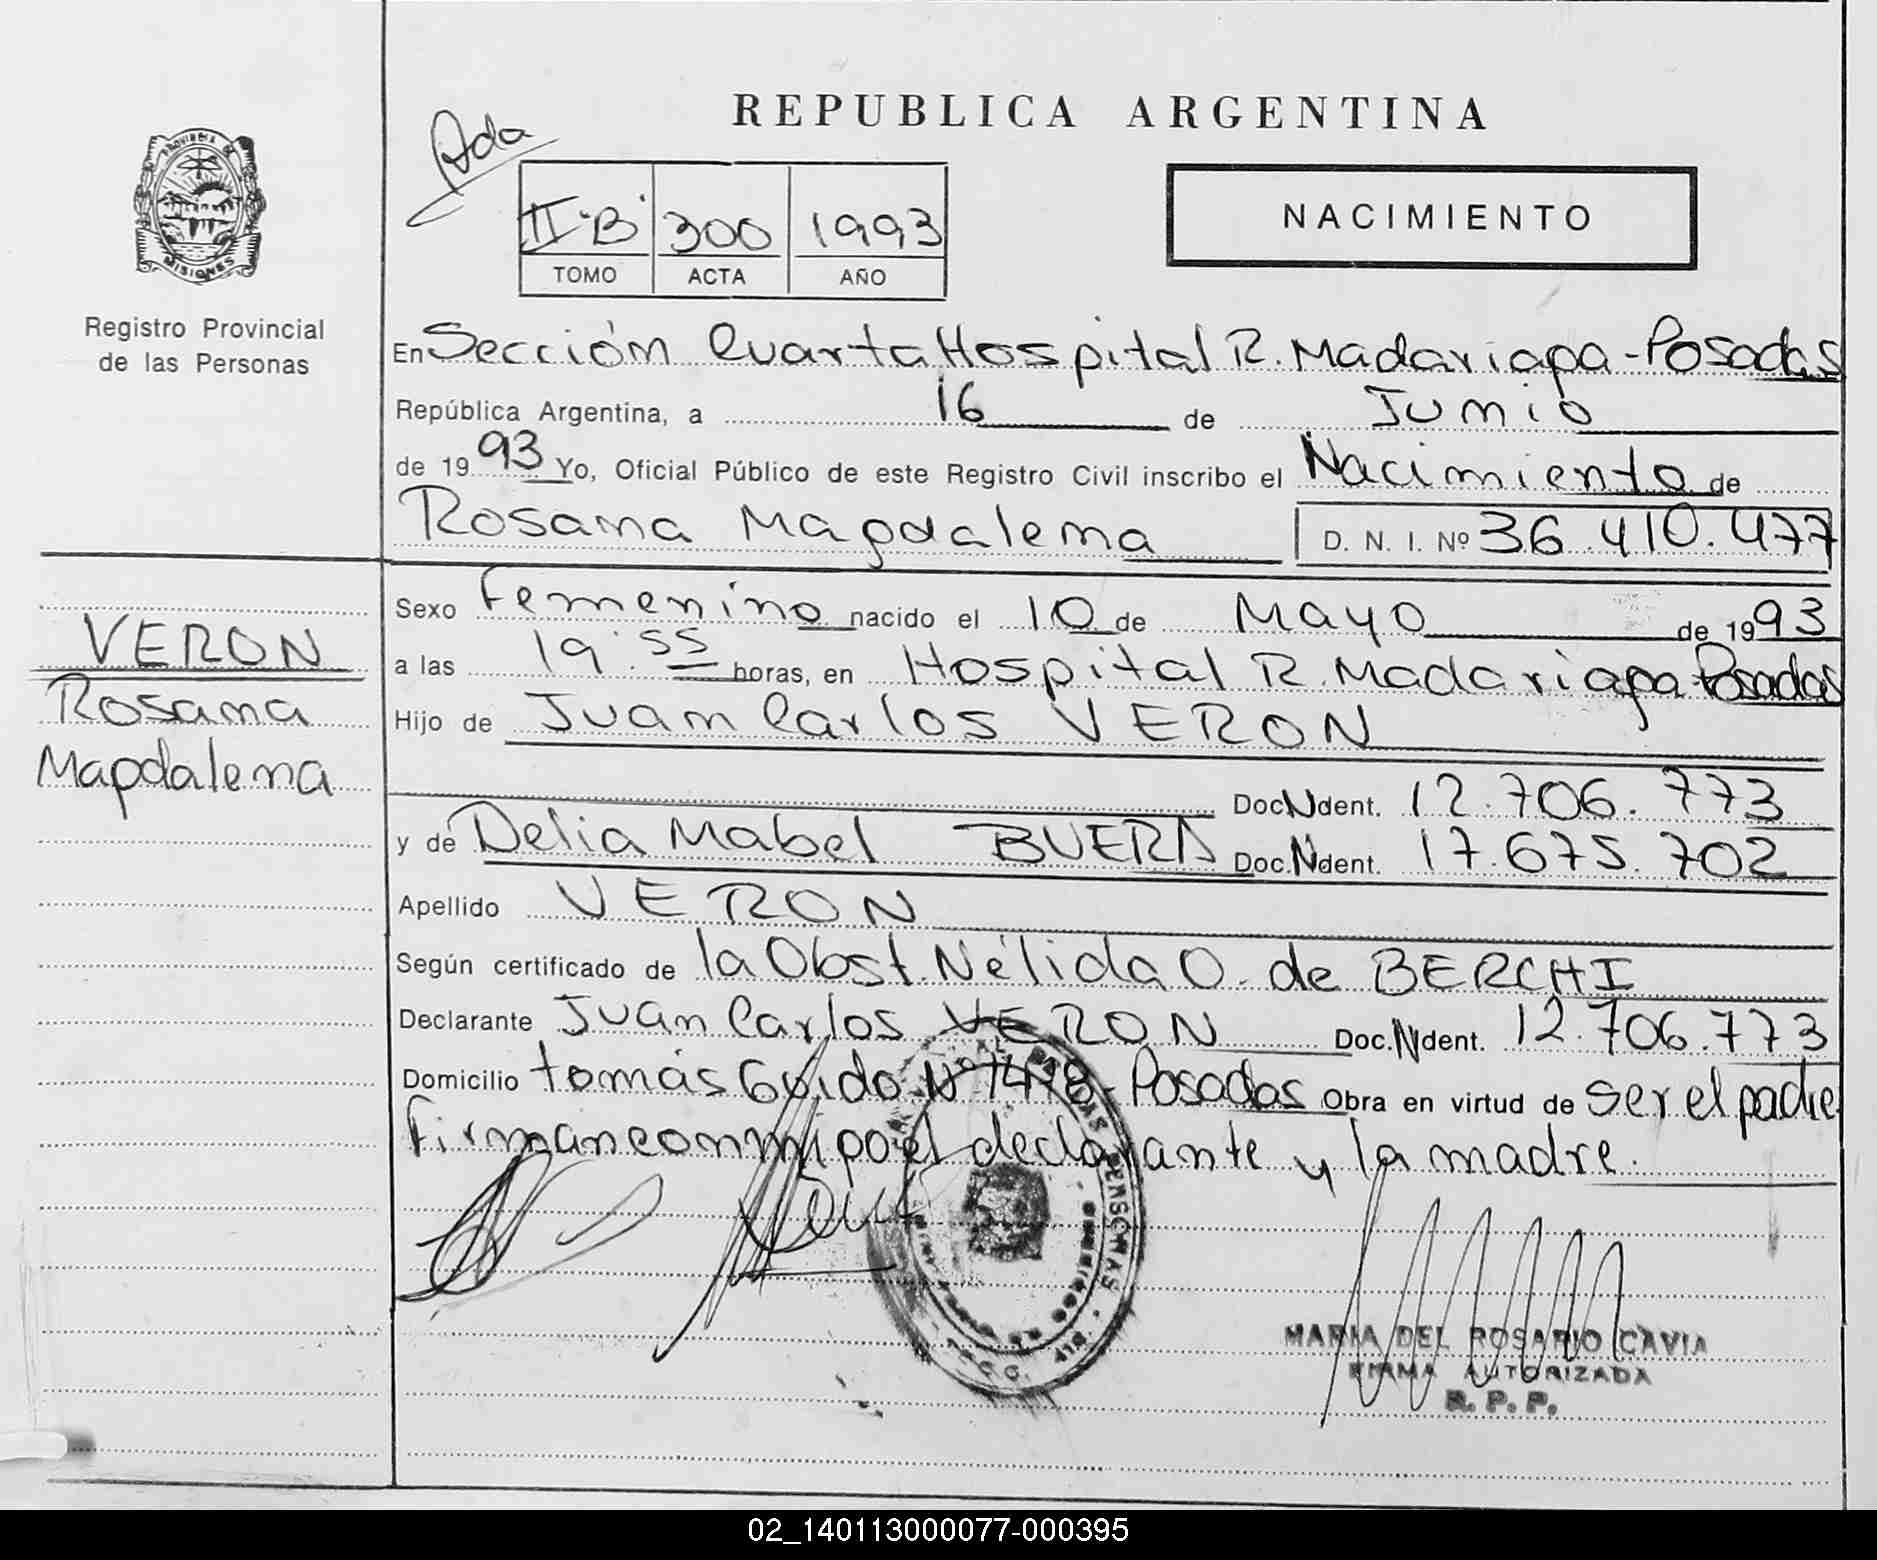 REPUBLICA ARGENTINA
Ada
II "B" 300 1993
TOMO ACTA AÑO
NACIMIENTO
PROVINCIA DE MISIONES
Registro Provincial
de las Personas
En Sección Cuarta Hospital R. Madariaga - Posadas
República Argentina, a 16 de Junio
de 19 93 Yo, Oficial Público de este Registro Civil inscribo el Nacimiento de
Rosana Magdalena D. N. I. Nº 36.410.477
VERON
Rosana
Magdalena
Sexo Femenino nacido el 10 de Mayo de 19 93
a las 19:55 horas, en Hospital R. Madariaga Posadas
Hijo de Juan Carlos VERON
Doc. N Ident. 12.706.773
y de Delia Mabel BUERA Doc. N Ident. 17.675.702
Apellido VERON
Según certificado de la Obst. Nélida O. de BERCHI
Declarante Juan Carlos VERON Doc. N Ident. 12.706.773
Domicilio Tomás Guido Nº - Posadas Obra en virtud de ser el padre
Firman conmigo el declarante y la madre.
MARIA DEL ROSARIO CAVIA
FIRMA AUTORIZADA
R. P. P.
02_140113000077-000395